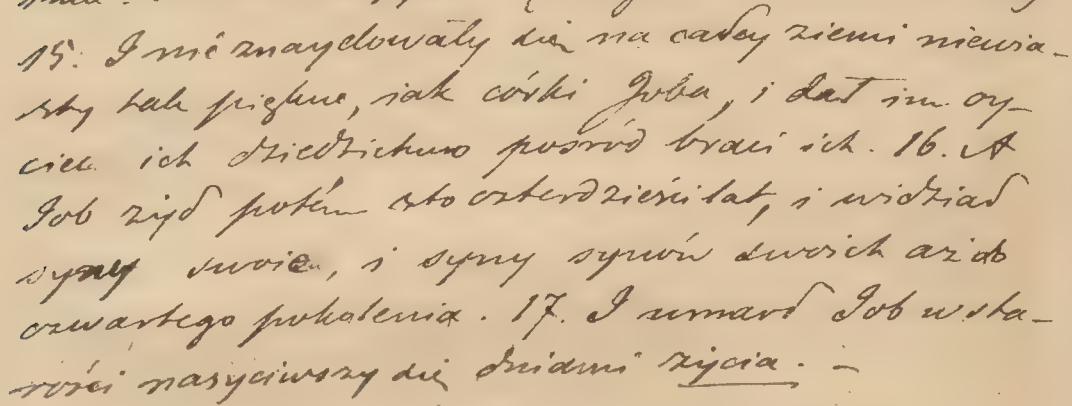 15. I nie znaydowały się na całey ziemi niewia-
sty tak piękne, jak córki Joba, i dał im oy-
ciec ich dziedzictwo pośród braci ich. 16. A
Job żył potém sto czterdzieści lat, i widział
syny swoie, i syny synów swoich aż do
czwartego pokolenia. 17. I umarł Job w sta-
rości nasyciwszy się dniami życia. –